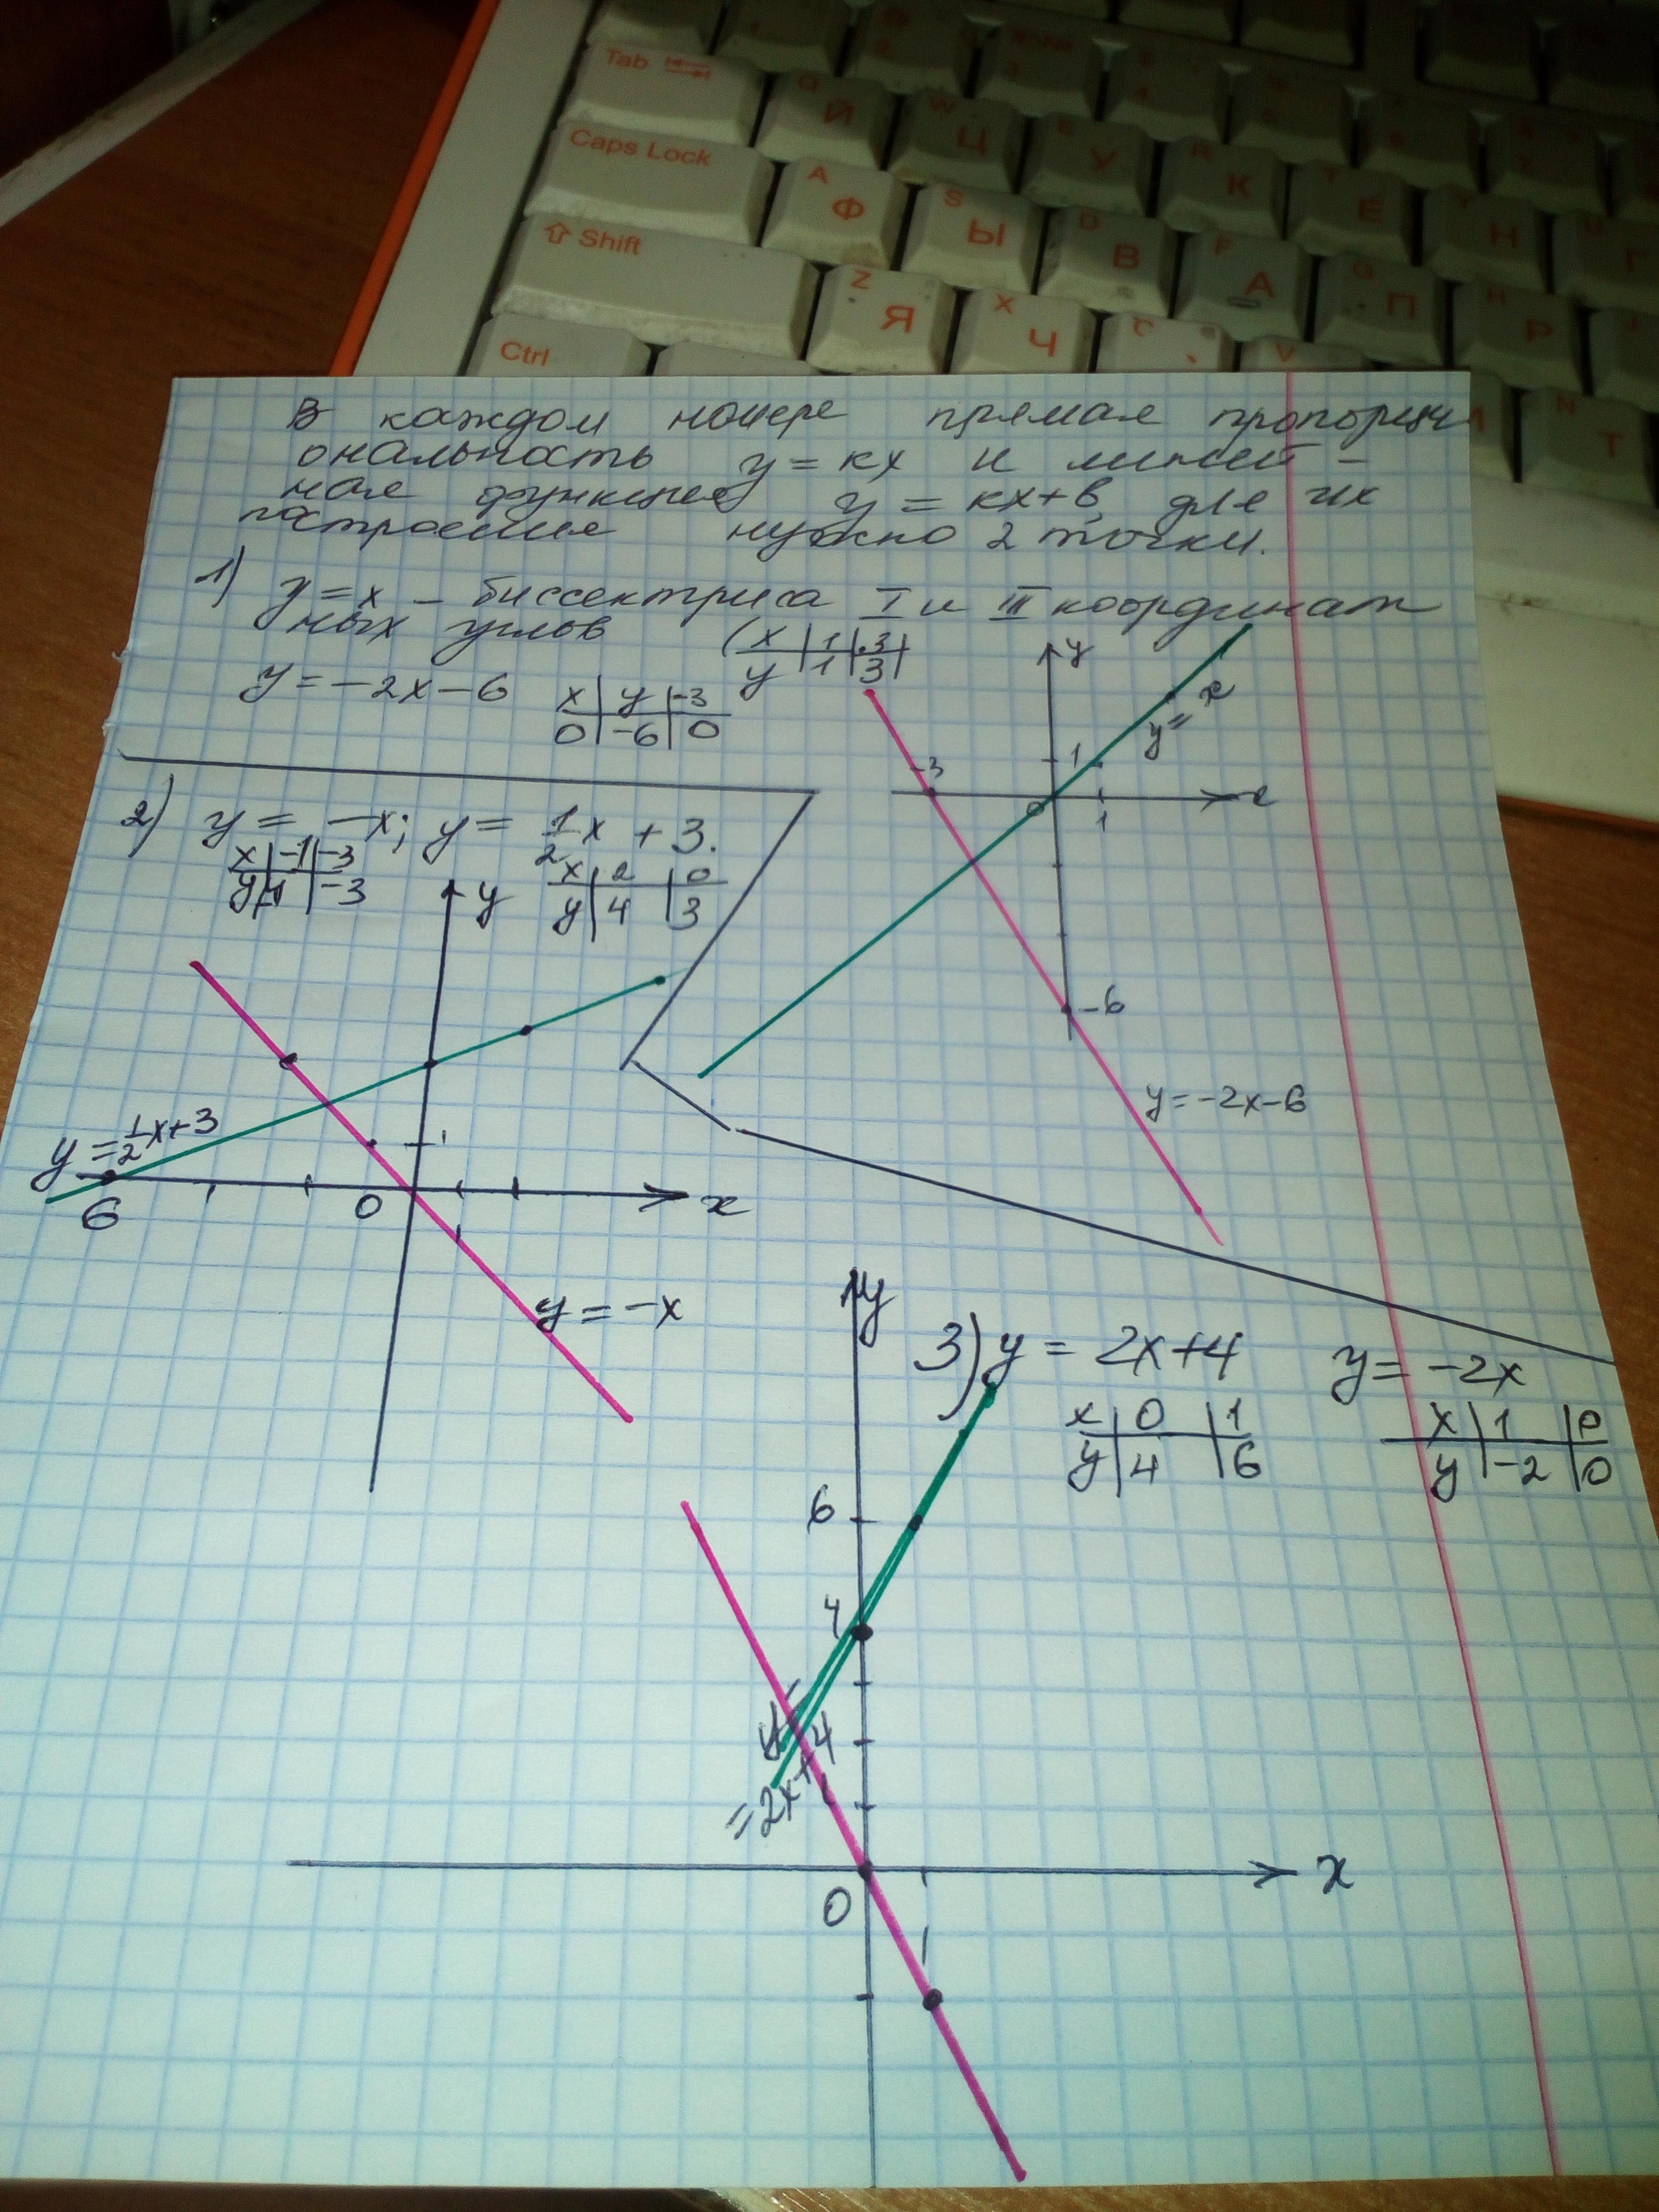 Tab
Caps Lock
Shift
Ctrl
Q Й W Ц E У R К T Е Y Н Г
A Ф S Ы D В F А G П H Р
Z Я X Ч C V N Т
В каждом номере прямая пропорци
ональность y = kx и линей-
ная функция y = kx+b, для их
построения нужно 2 точки.
1) y = x - биссектриса I и III координат
ных углов (x | 1 | 3 |
y | 1 | 3 |
y = -2x-6
x | y | -3
0 | -6 | 0
y
y = x
1
-3
x
0
1
-6
y = -2x-6
2) y = -x; y = 1/2 x + 3.
x | -1 | -3
y | 1 | -3
x | 2 | 0
y | 4 | 3
y
y = 1/2 x+3
1
6
0
x
y = -x
y
3) y = 2x+4
x | 0 | 1
y | 4 | 6
y = -2x
x | 1 | 0
y | -2 | 0
6
4
y = 2x+4
x
0
1